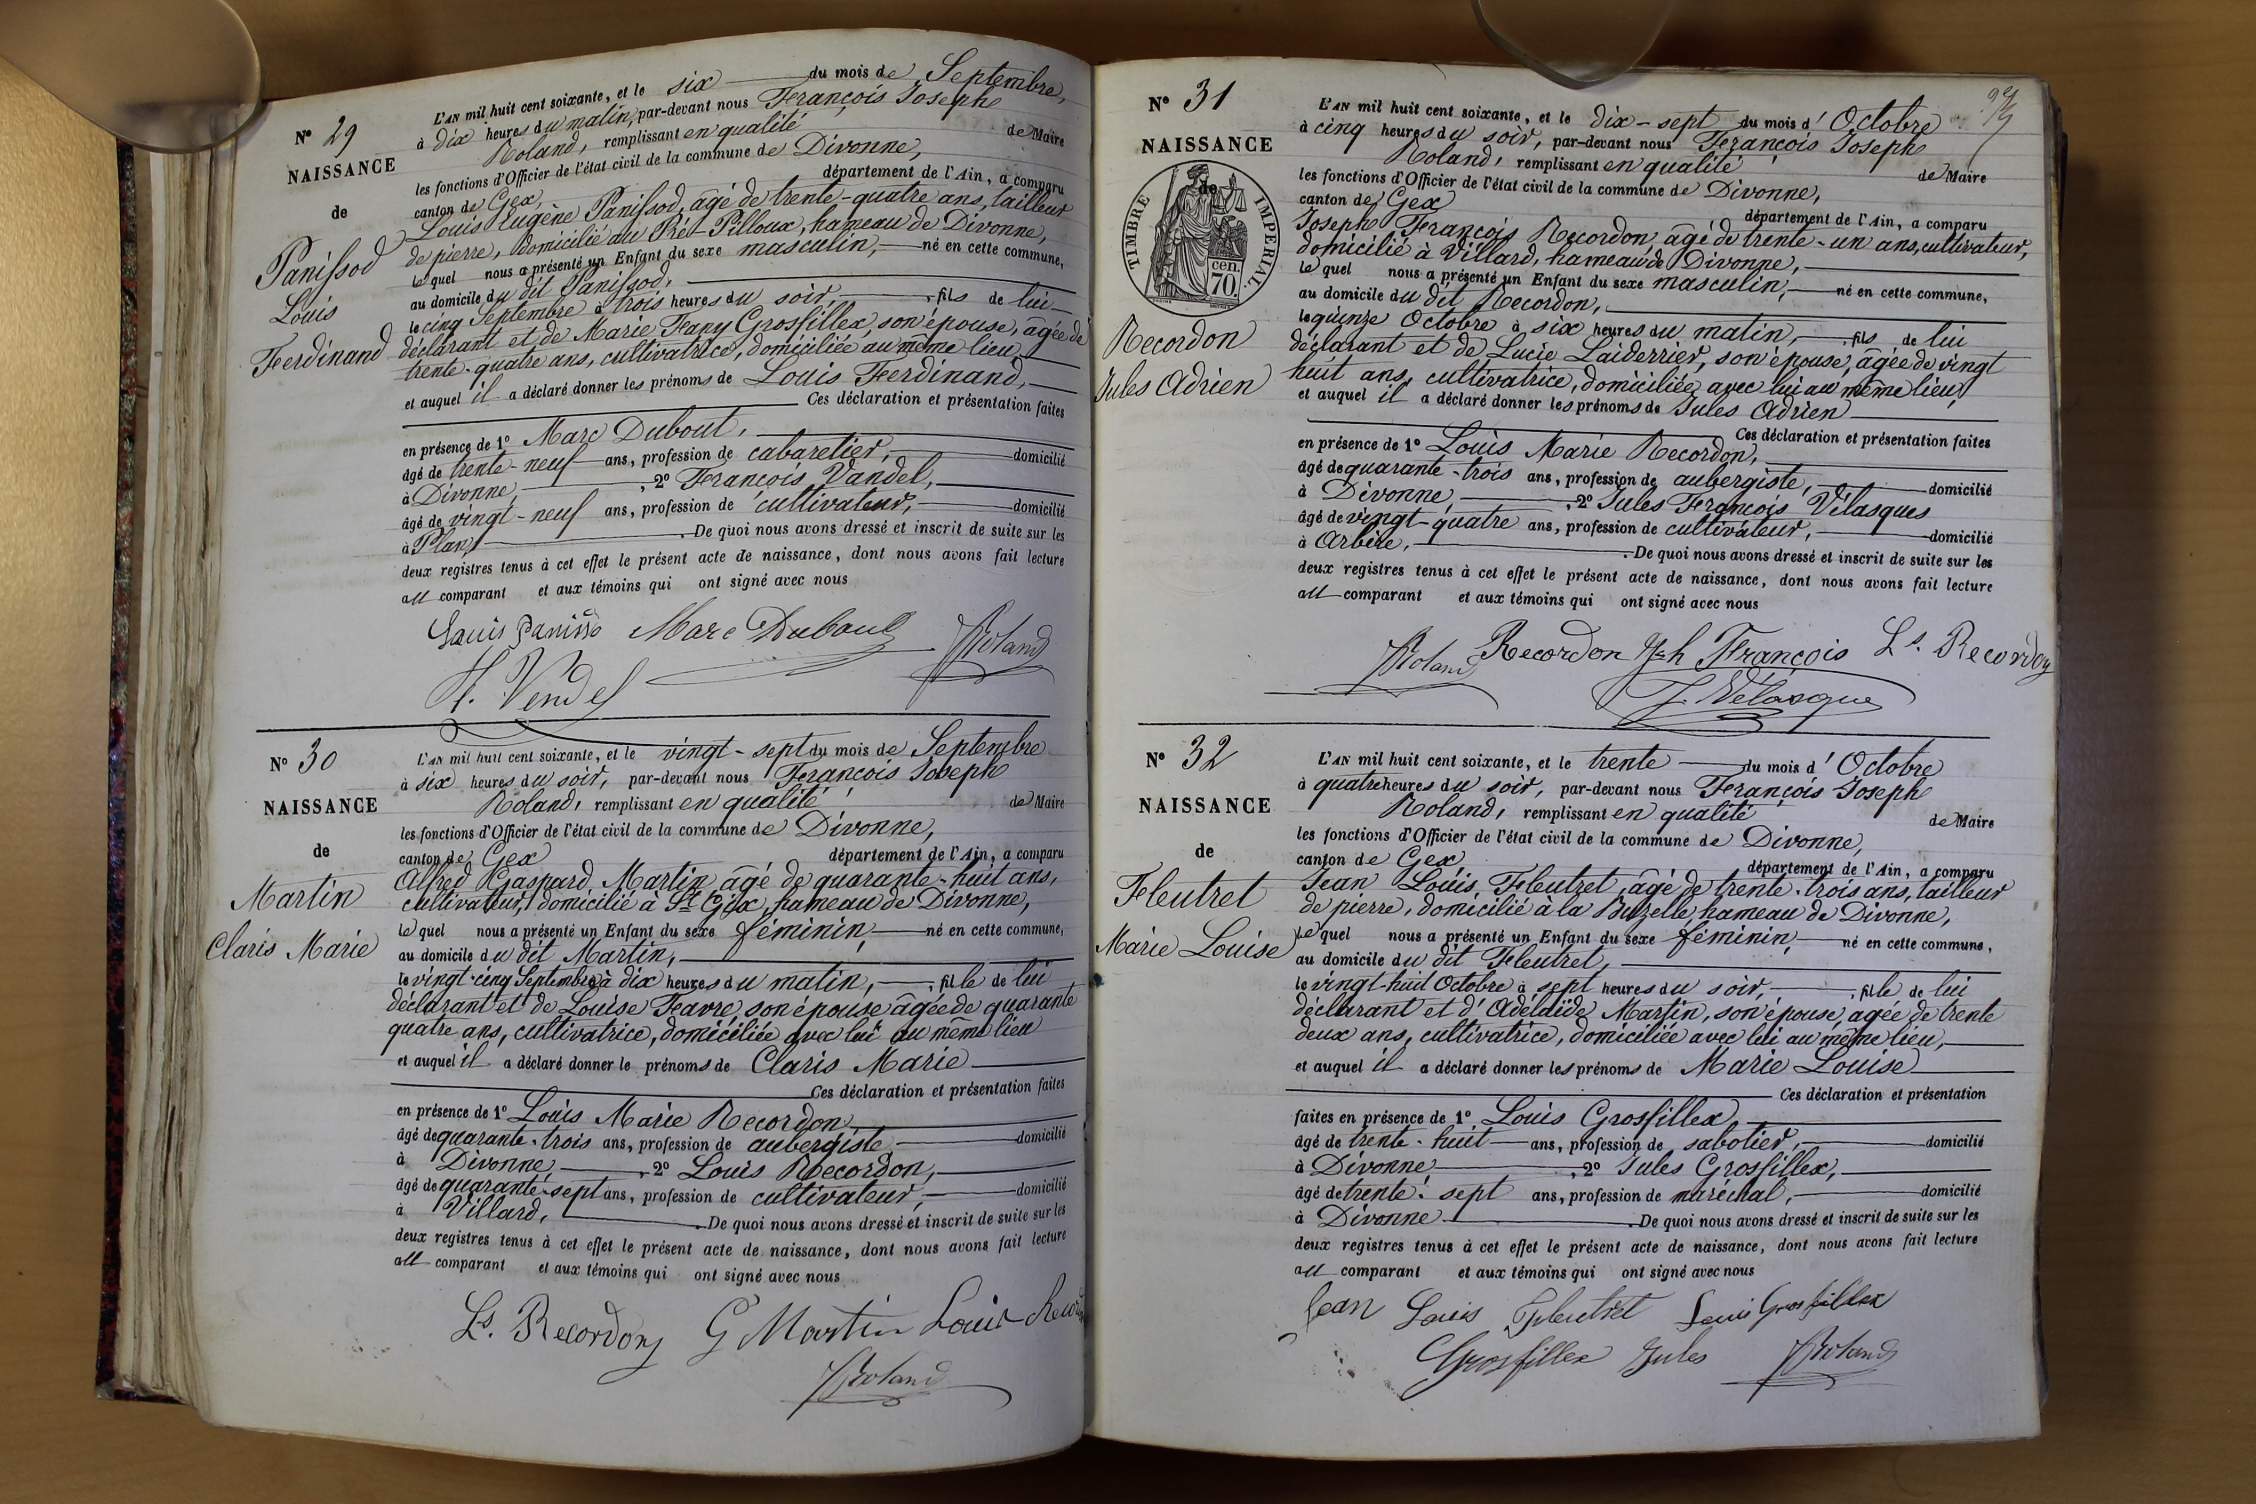 N° 29
NAISSANCE
de
Panissod
Louis
Ferdinand
L'AN mil huit cent soixante, et le six du mois de Septembre,
à dix heures du matin, par-devant nous François Joseph
Roland, remplissant en qualité de Maire
les fonctions d'Officier de l'état civil de la commune de Divonne,
canton de Gex, département de l'Ain, a comparu
Louis Eugène Panissod, âgé de trente-quatre ans, tailleur
de pierre, domicilié au Pré-Pilloux, hameau de Divonne,
lequel nous a présenté un Enfant du sexe masculin, né en cette commune,
au domicile du dit Panissod,
le cinq Septembre à trois heures du soir, fils de lui
déclarant et de Marie Fany Grosfillex, son épouse, âgée de
trente-quatre ans, cultivatrice, domiciliée au même lieu
et auquel il a déclaré donner les prénoms de Louis Ferdinand,
Ces déclaration et présentation faites
en présence de 1° Marc Dubout,
âgé de trente-neuf ans, profession de cabaretier, domicilié
à Divonne, 2° François Vandel,
âgé de vingt-neuf ans, profession de cultivateur, domicilié
à Plan, De quoi nous avons dressé et inscrit de suite sur les
deux registres tenus à cet effet le présent acte de naissance, dont nous avons fait lecture
au comparant et aux témoins qui ont signé avec nous
Louis Panisso Marc Dubout JRoland
F. Vendel
N° 30
NAISSANCE
de
Martin
Claris Marie
L'AN mil huit cent soixante, et le vingt-sept du mois de Septembre
à six heures du soir, par-devant nous François Joseph
Roland, remplissant en qualité de Maire
les fonctions d'Officier de l'état civil de la commune de Divonne,
canton de Gex département de l'Ain, a comparu
Alfred Gaspard Martin, âgé de quarante-huit ans,
cultivateur, domicilié à St Gix, hameau de Divonne,
lequel nous a présenté un Enfant du sexe féminin, né en cette commune,
au domicile du dit Martin,
le vingt-cinq Septembre à dix heures du matin, fille de lui
déclarant et de Louise Favre, son épouse âgée de quarante
quatre ans, cultivatrice, domiciliée avec lui au même lieu
et auquel il a déclaré donner le prénoms de Claris Marie
Ces déclaration et présentation faites
en présence de 1° Louis Marie Recordon,
âgé de quarante-trois ans, profession de aubergiste domicilié
à Divonne, 2° Louis Recordon,
âgé de quarante-sept ans, profession de cultivateur, domicilié
à Villard, De quoi nous avons dressé et inscrit de suite sur les
deux registres tenus à cet effet le présent acte de naissance, dont nous avons fait lecture
au comparant et aux témoins qui ont signé avec nous
Ls. Recordon G Martin Louis Record
JRoland
N° 31
NAISSANCE
de
TIMBRE IMPERIAL
cen.
70.
Recordon
Jules Adrien
L'AN mil huit cent soixante, et le dix-sept du mois d'Octobre
à cinq heures du soir, par-devant nous François Joseph
Roland, remplissant en qualité de Maire
les fonctions d'Officier de l'état civil de la commune de Divonne,
canton de Gex département de l'Ain, a comparu
Joseph François Recordon, âgé de trente-un ans, cultivateur,
domicilié à Villard, hameau de Divonne,
lequel nous a présenté un Enfant du sexe masculin, né en cette commune,
au domicile du dit Recordon,
le quinze Octobre à six heures du matin, fils de lui
déclarant et de Lucie Laiderrier, son épouse, âgée de vingt
huit ans, cultivatrice, domiciliée avec lui au même lieu,
et auquel il a déclaré donner les prénoms de Jules Adrien
Ces déclaration et présentation faites
en présence de 1° Louis Marie Recordon,
âgé de quarante-trois ans, profession de aubergiste, domicilié
à Divonne, 2° Jules François Vélasques
âgé de vingt-quatre ans, profession de cultivateur, domicilié
à Arbère, De quoi nous avons dressé et inscrit de suite sur les
deux registres tenus à cet effet le présent acte de naissance, dont nous avons fait lecture
au comparant et aux témoins qui ont signé avec nous
JRoland Recordon Jph François Ls. Recordon
J. Vélasque
N° 32
NAISSANCE
de
Fleutret
Marie Louise
L'AN mil huit cent soixante, et le trente du mois d'Octobre
à quatre heures du soir, par-devant nous François Joseph
Roland, remplissant en qualité de Maire
les fonctions d'Officier de l'état civil de la commune de Divonne,
canton de Gex département de l'Ain, a comparu
Jean Louis Fleutret, âgé de trente-trois ans, tailleur
de pierre, domicilié à la hameau de Divonne,
lequel nous a présenté un Enfant du sexe féminin, né en cette commune,
au domicile du dit Fleutret,
le vingt-huit Octobre à sept heures du soir, fille de lui
déclarant et d'Adélaïde Martin, son épouse, agée de trente
deux ans, cultivatrice, domiciliée avec lui au même lieu,
et auquel il a déclaré donner les prénoms de Marie Louise
Ces déclaration et présentation
faites en présence de 1° Louis Grosfillex
âgé de trente-huit ans, profession de sabotier, domicilié
à Divonne 2° Jules Grosfillex,
âgé de trente-sept ans, profession de maréchal, domicilié
à Divonne De quoi nous avons dressé et inscrit de suite sur les
deux registres tenus à cet effet le présent acte de naissance, dont nous avons fait lecture
au comparant et aux témoins qui ont signé avec nous
Jean Louis Fleutret Louis Grosfillex
Grosfillex Jules JRoland